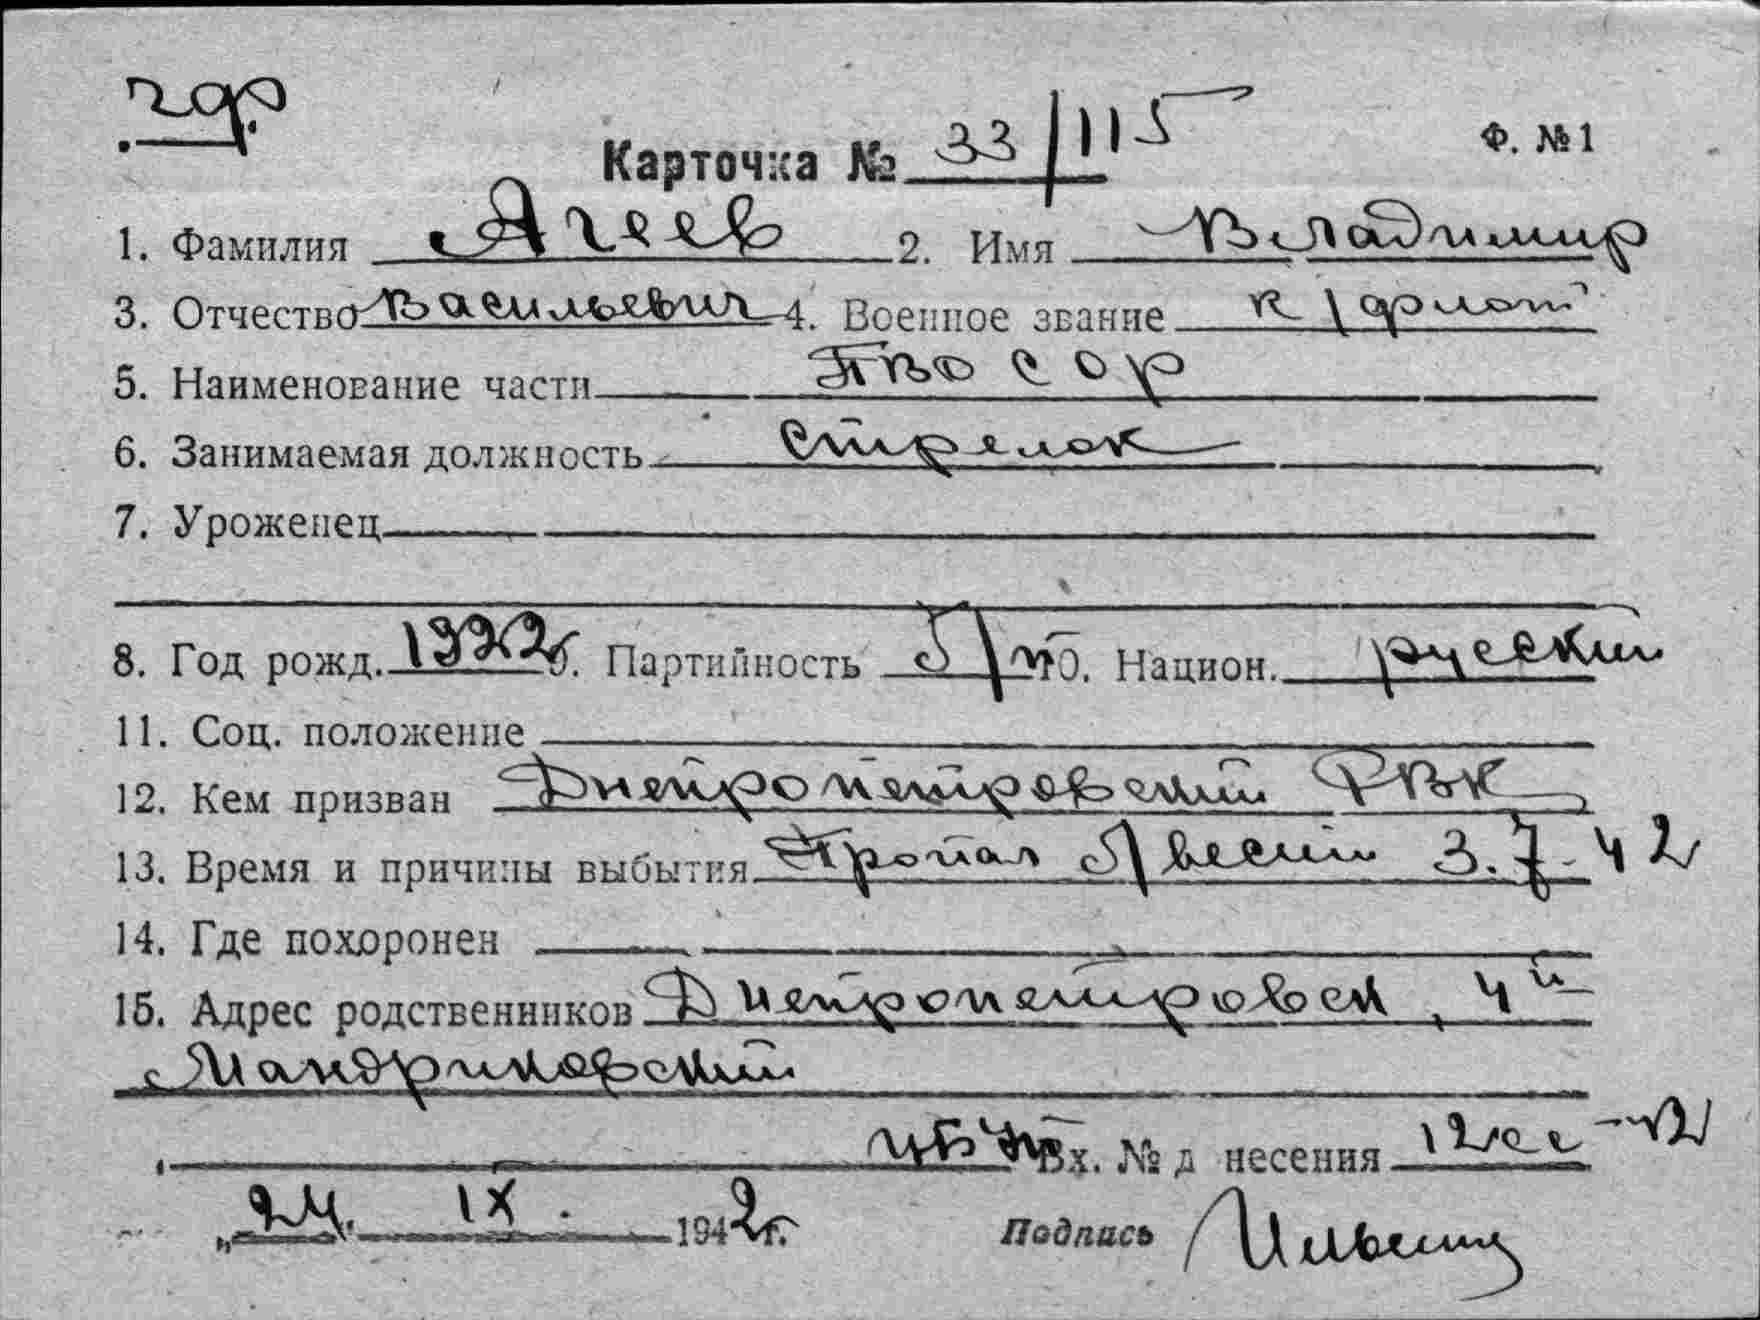 чф.
Карточка № 33/115 Ф. №1
1. Фамилия Агеев 2. Имя Владимир
3. Отчество Васильевич 4. Военное звание к/флот
5. Наименование части ПВО СОР
6. Занимаемая должность Стрелок
7. Уроженец
8. Год рожд. 1922 г. Партийность б/п 10. Национ. русский
11. Соц. положение
12. Кем призван Днепропетровский РВК
13. Время и причины выбытия Пропал б/вести 3.7.42
14. Где похоронен
15. Адрес родственников Днепропетровск, 4й
Мандриковский
Вх. № д несения 12сс
„24. IX. 1942 г. Подпись Ильин